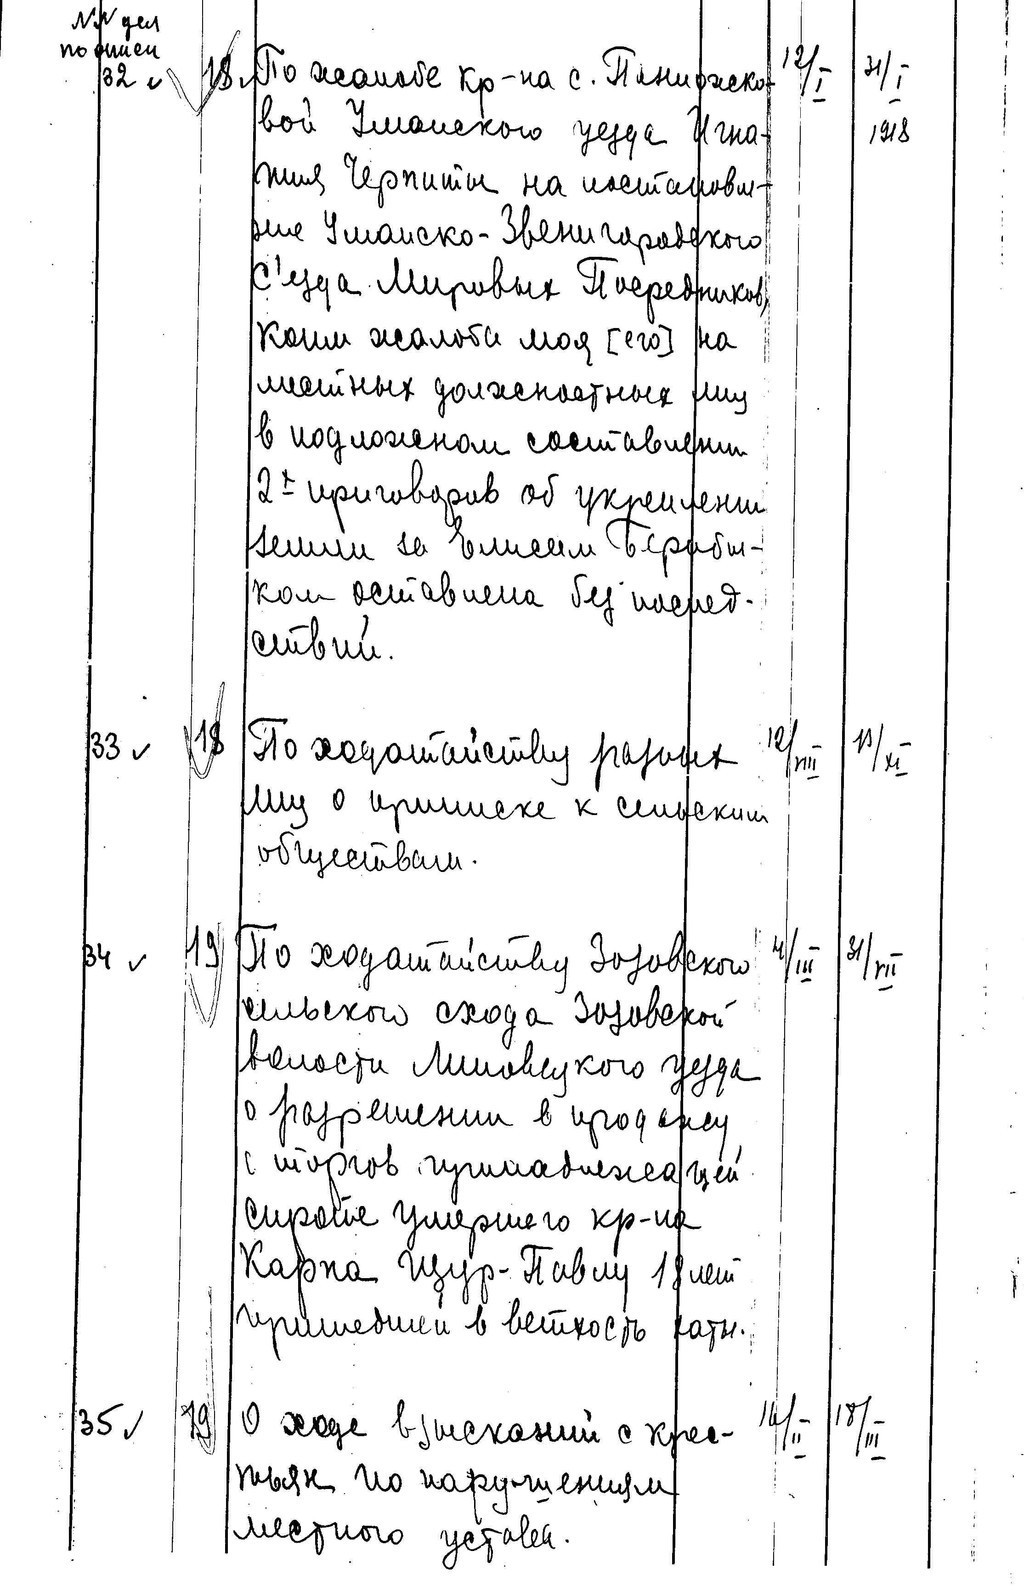 NN дел
по описи
32 18 По жалобе кр-на с. Панижско- 12/I 31/I
вой Уманского уезда Игна- 1918
тия Черпиты на постановле-
ние Уманско-Звенигородского
С'езда Мировых Посредников,
коим жалоба моя [его] на
местных должностных лиц
в подложном составлении
2х приговоров об укреплении
земли за Елисеем
ком оставлена без послед-
ствий.
33 18 По ходатайству разных 12/VIII 13/XI
лиц о приписке к сельским
обществам.
34 19 По ходатайству Зозовского 4/III 31/VII
сельского схода Зозовской
волости Липовецкого уезда
о разрешении в продажу
с торгов принадлежащей
сироте умершего кр-на
Карпа Щур-Павлу 18 лет
пришедшей в ветхость хаты.
35 19 О ходе взысканий с крес- 14/II 18/III
тьян по нарушениям
местного устава.